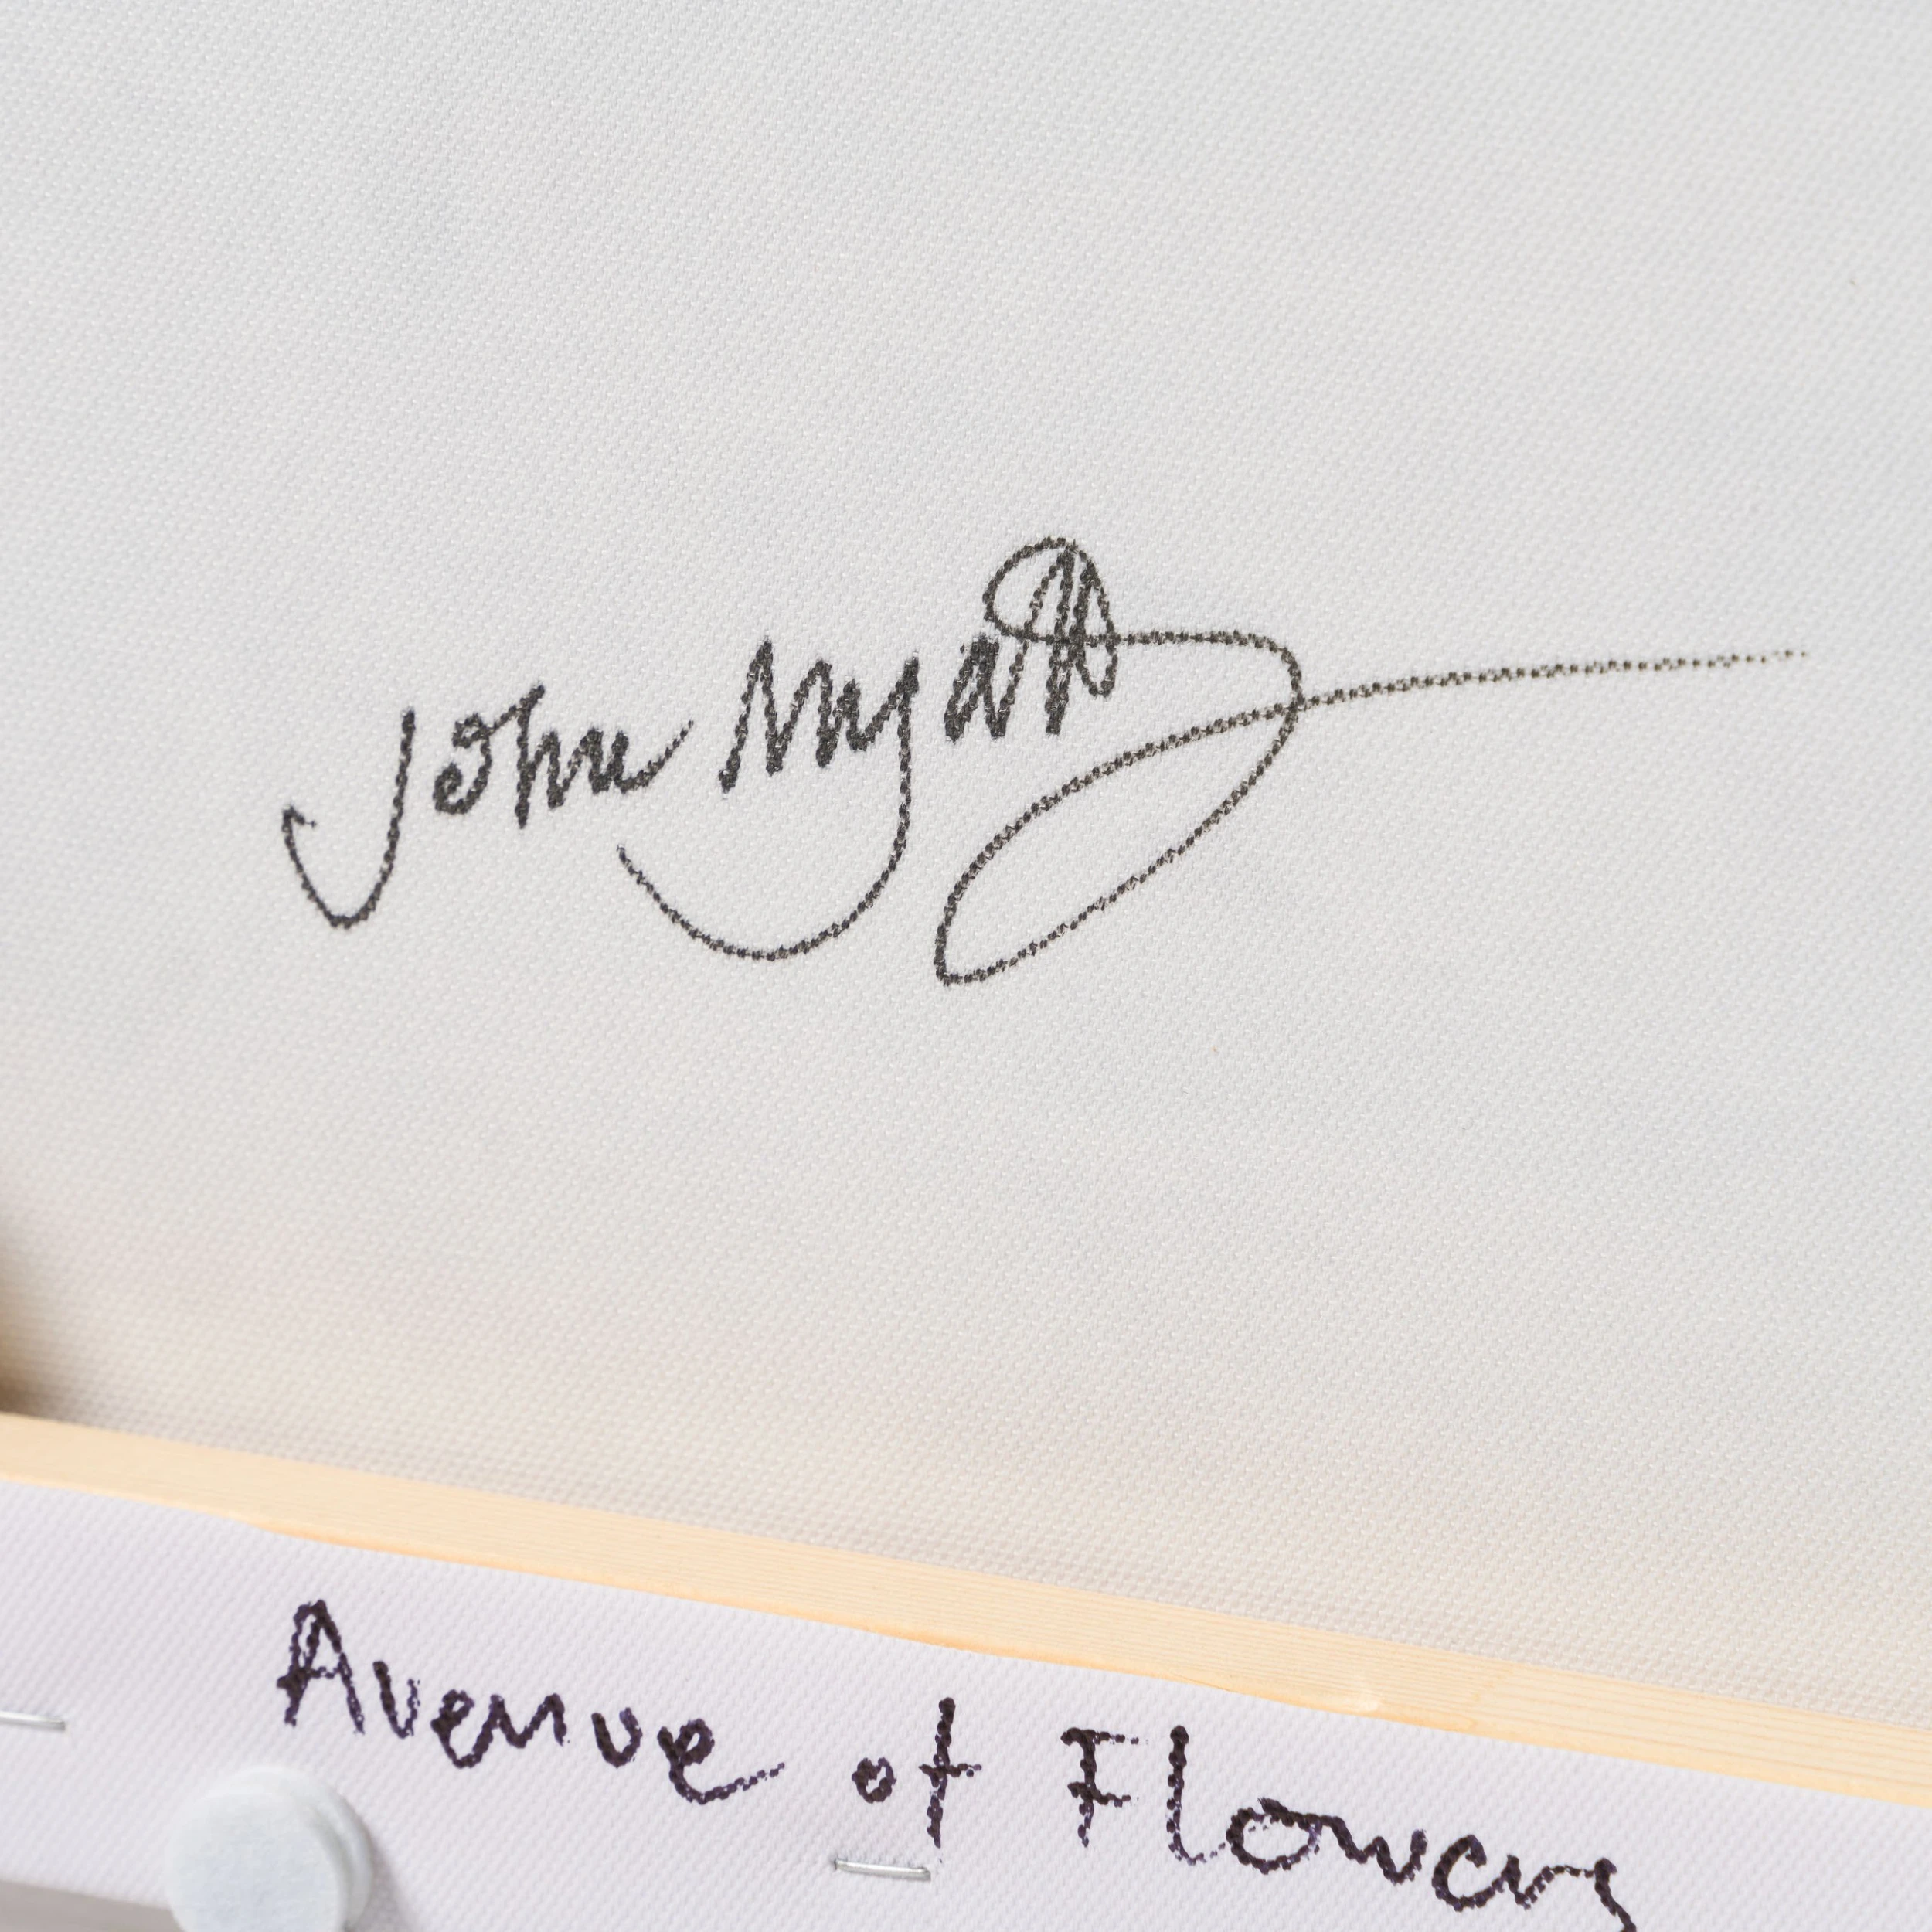 John Myatt
Avenue of Flowers